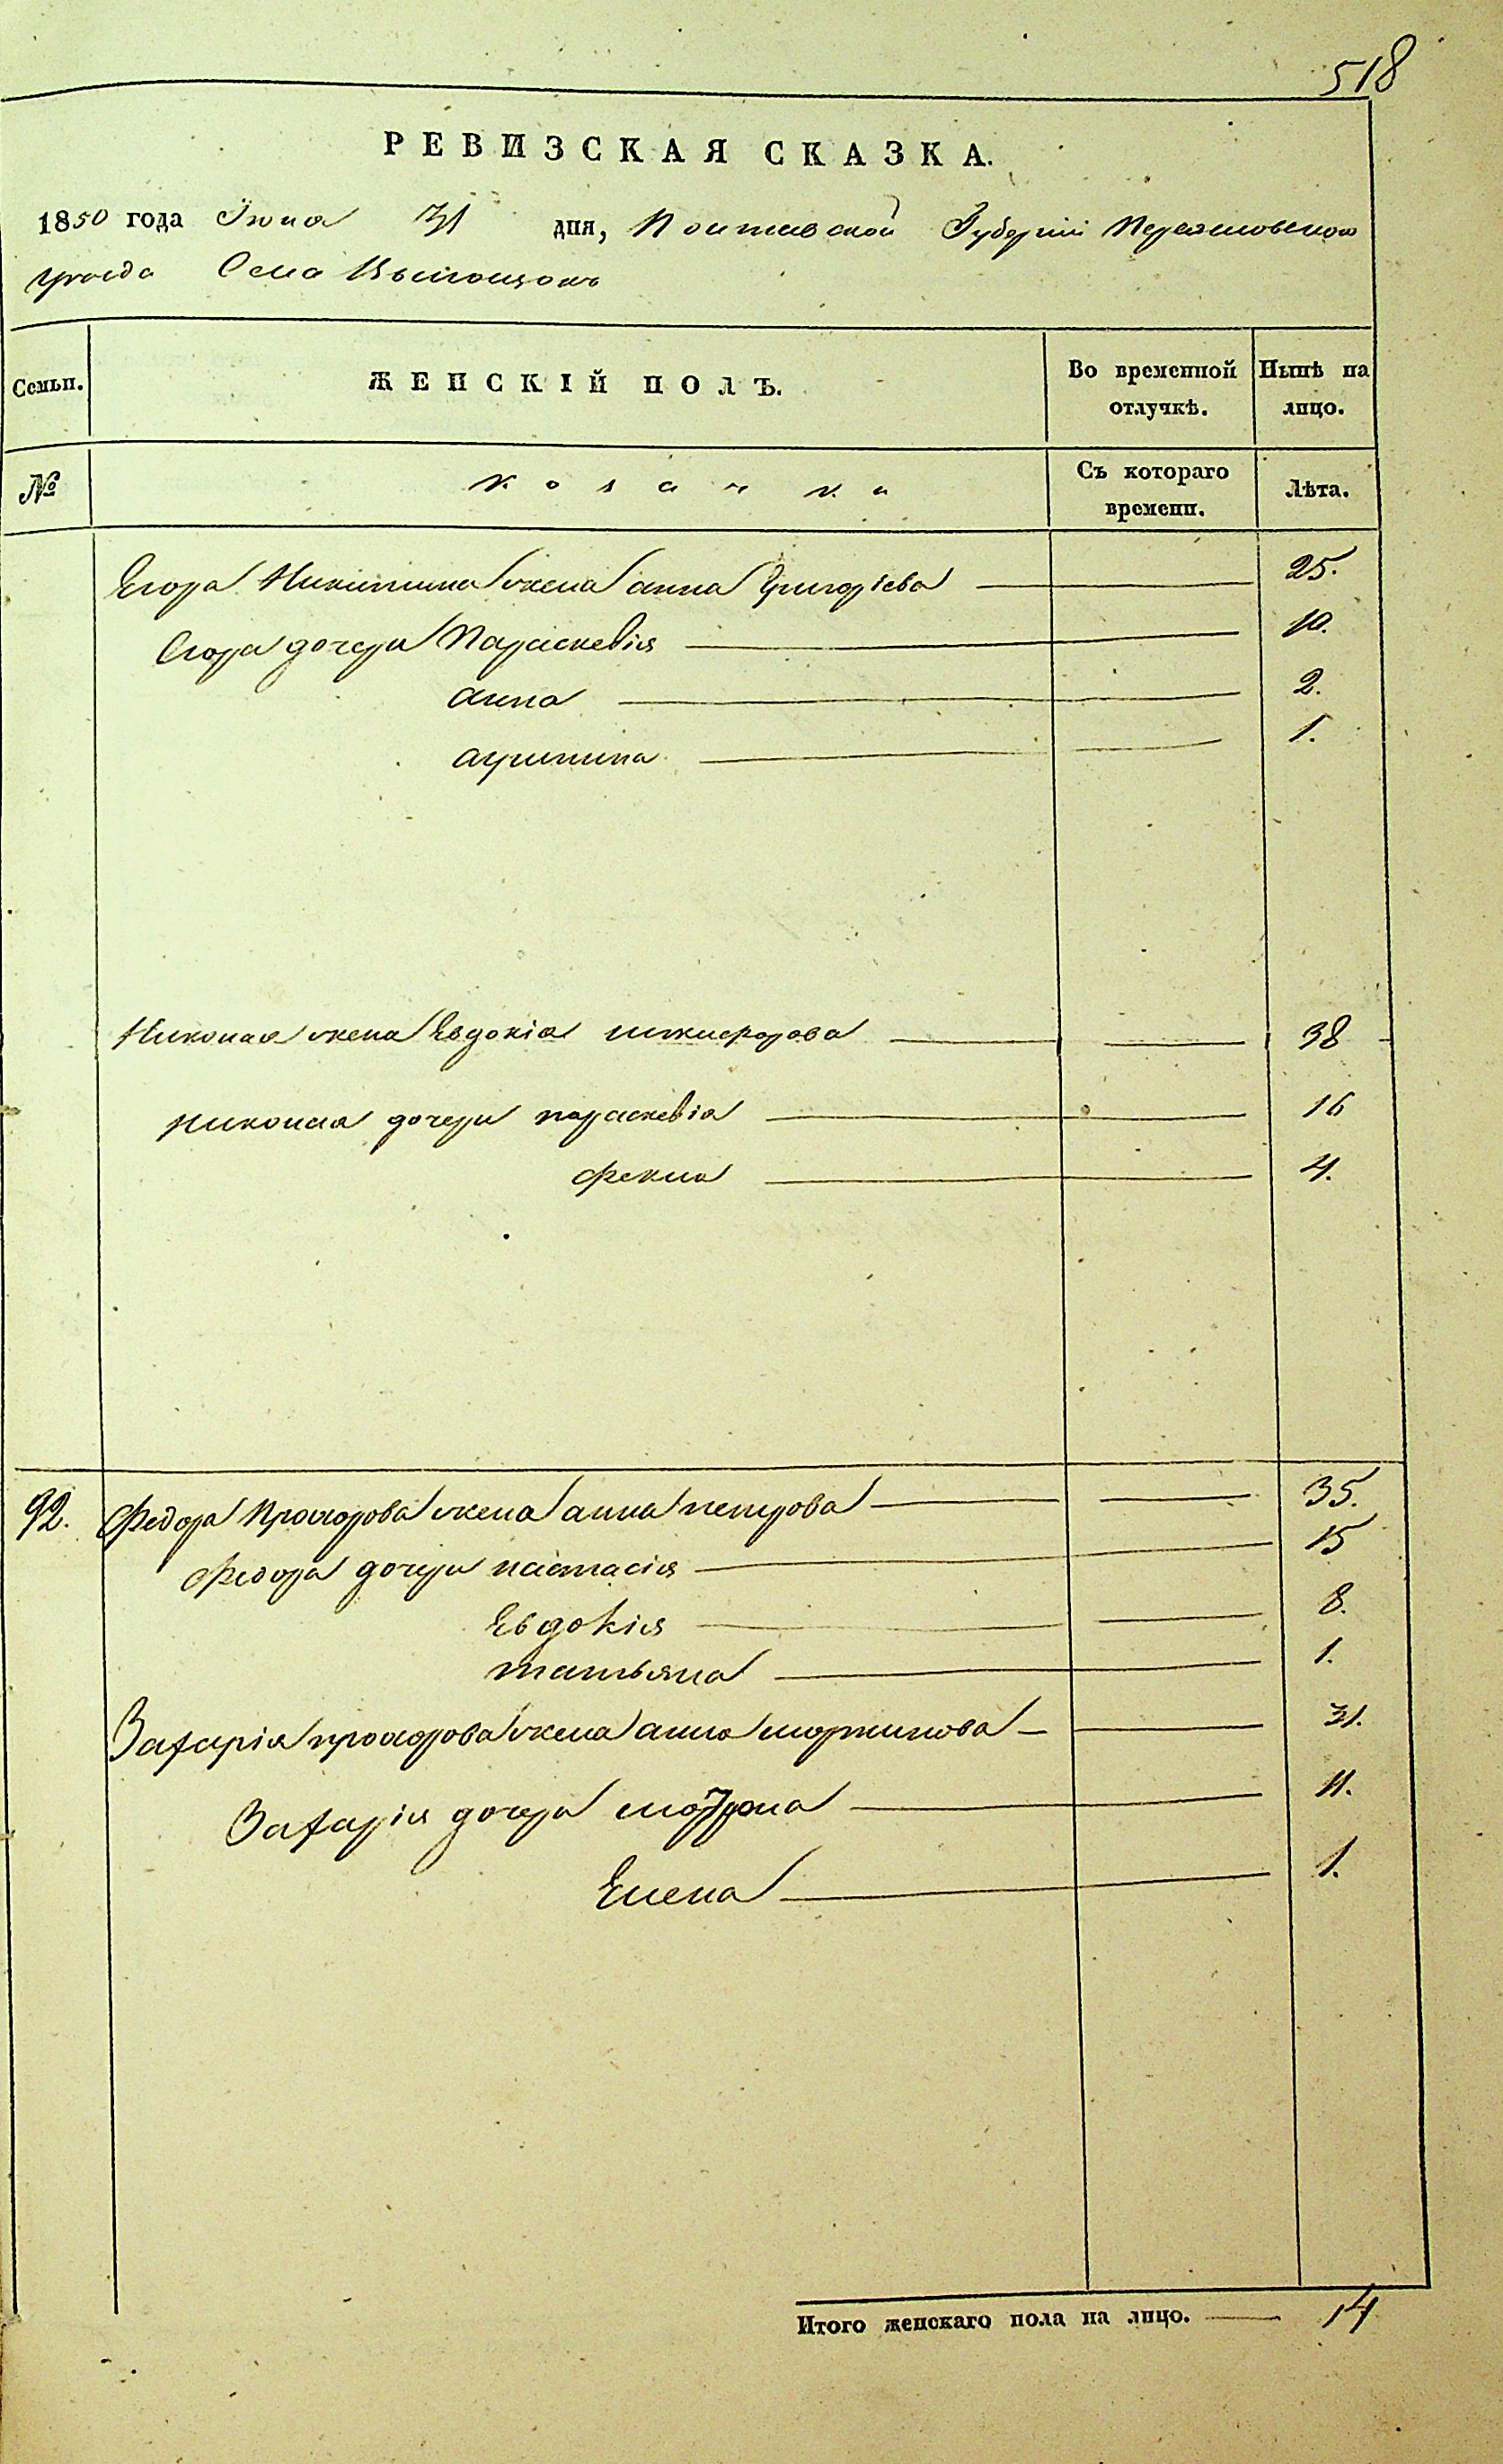 518
РЕВИЗСКАЯ СКАЗКА.
1850 года Июля 31 дня, Полтавской Губерніи Переяславского
уезда Села
Семьи. ЖЕНСКІЙ ПОЛЪ. Во временной отлучкѣ. Нынѣ на лицо.
№ козачки Съ котораго времени. Лѣта.
Егора Никитина жена анна Григоріева 25.
Егора дочери Параскевія 10.
анна 2.
1.
Николая жена Евдокіа никифорова 38
николая дочери параскевіа 16
фекла 4.
92. Федора Прохорова жена анна петрова 35.
Федора дочери настасія 15
Евдокія 8.
татьяна 1.
Захарія прохорова жена анна мартинова 31.
Захарія дочери мотрона 11.
Елена 1.
Итого женскаго пола на лицо. 14